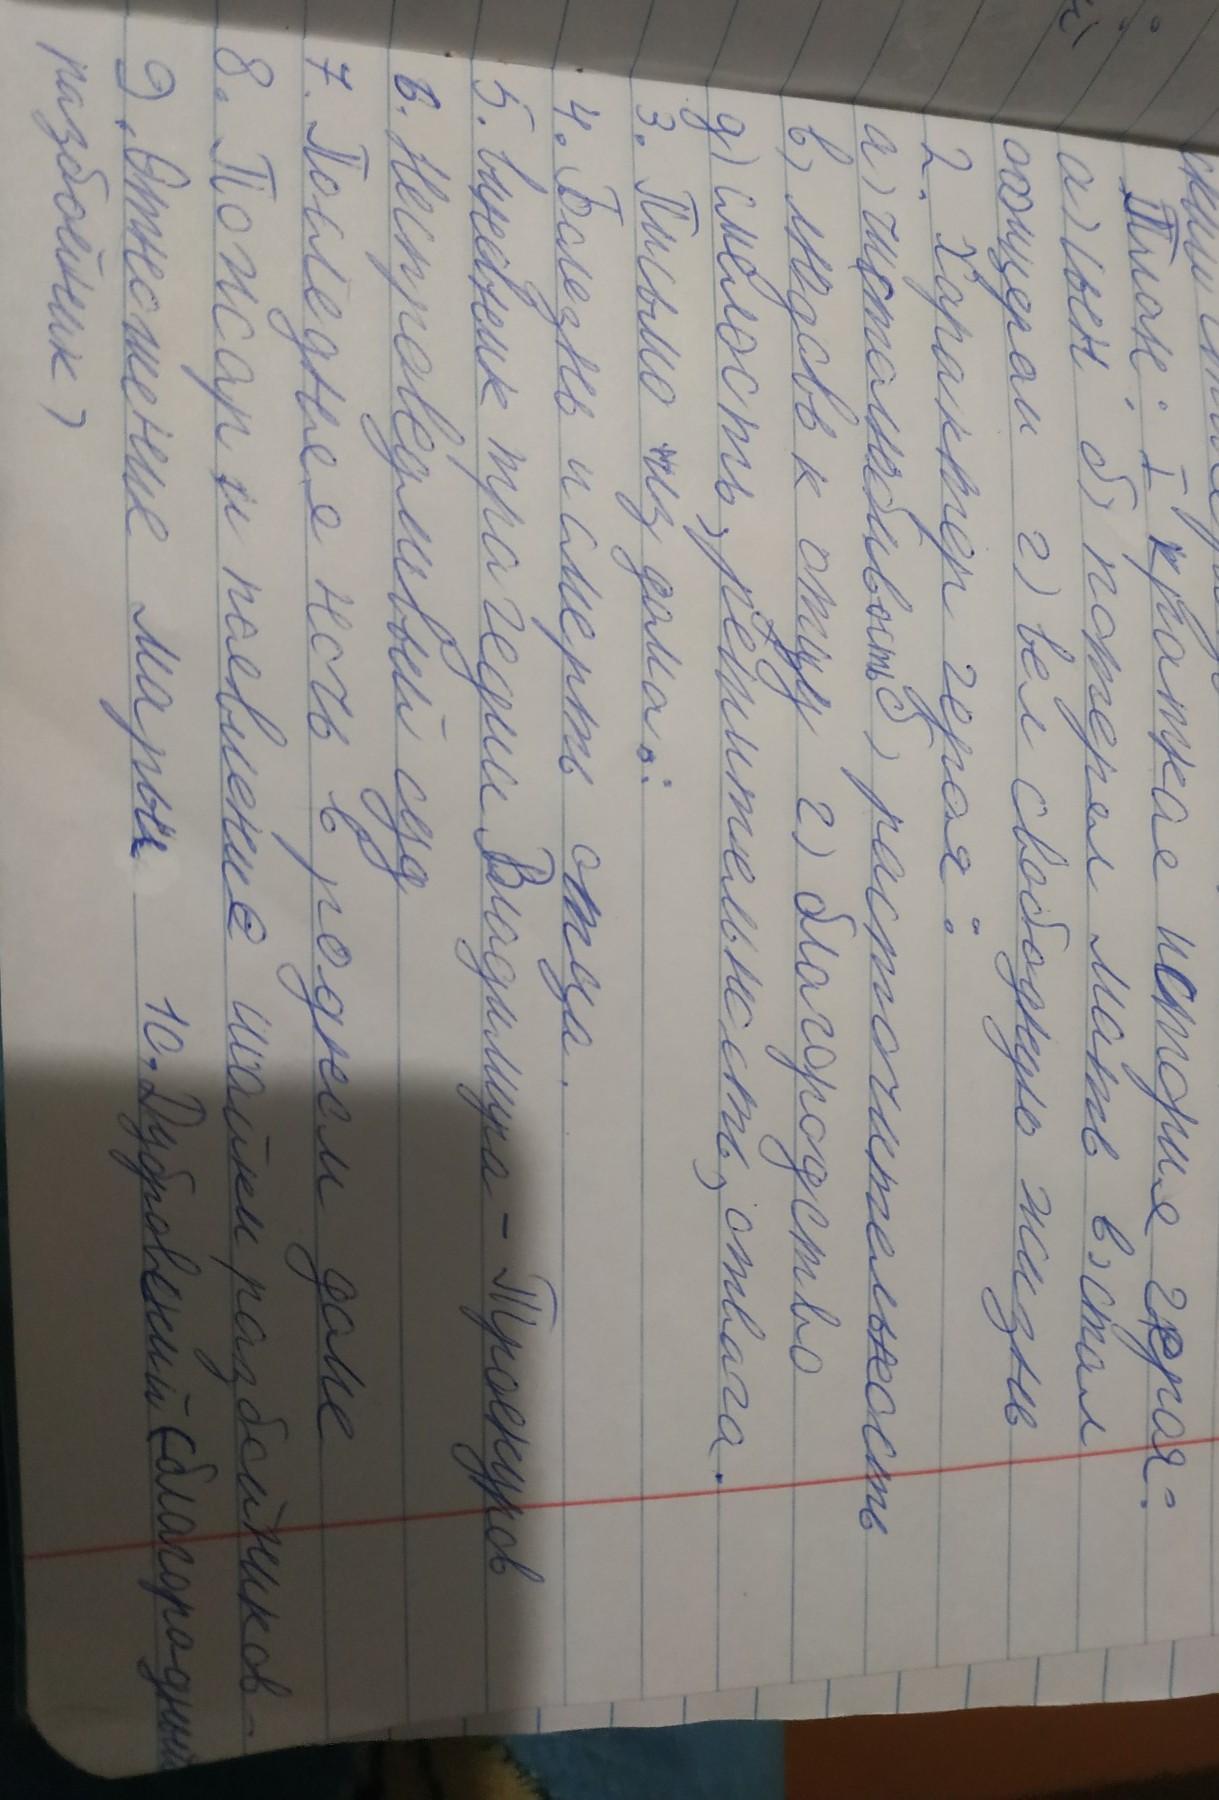 План: I краткая история героя:
а) сын б) потерял мать в) стал
офицером г) вел свободную жизнь
2. Характер героя:
а) честолюбивость б) расточительность
в) любовь к отцу г) благородство
д) смелость, решительность, отвага.
3. Письмо из дома.
4. Болезнь и смерть отца.
5. Виновник трагедии Владимира - Троекуров
6. Несправедливый суд
7. Последняя ночь в родном доме
8. Пожар и появление шайки разбойников -
9. Отношение Марьи 10. Дубровский (благородный
разбойник)